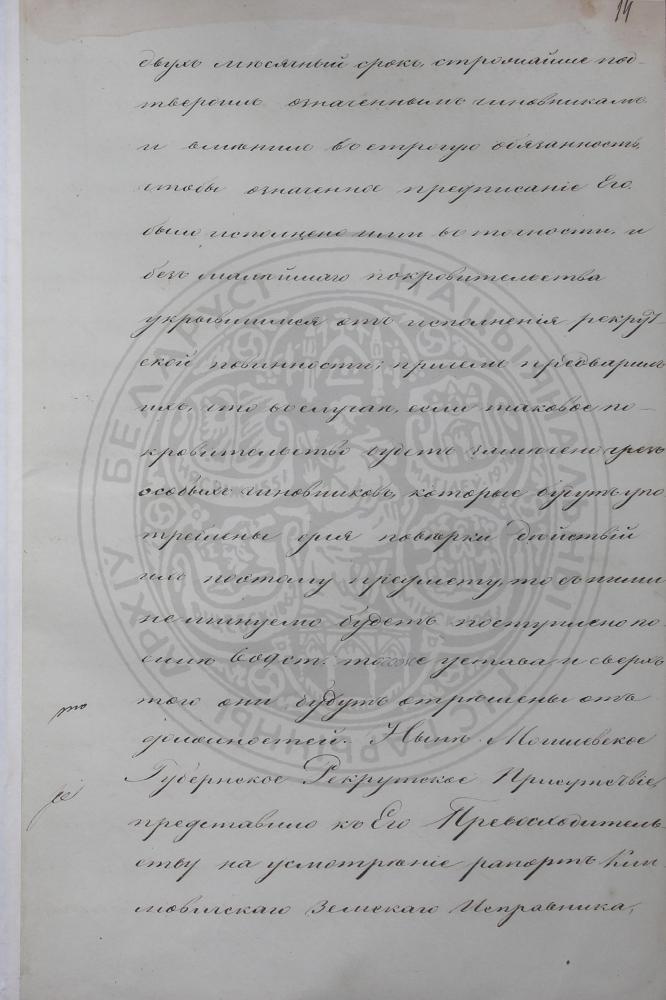 14
двухъ мѣсячный срокъ, строжайше под-
твердилъ означеннымъ чиновникамъ
и вмѣнилъ въ строгую обязанность,
чтобы означенное предписаніе Его
было исполнено ими въ точности, и
безъ малѣйшаго покровительства
укрывшимся отъ исполненія рекрут-
ской повинности; причемъ предварилъ
ихъ, что въ случаѣ, если таковое по-
кровительство будетъ замѣчено чрезъ
особыхъ чиновниковъ, которые будутъ упо
треблены для повѣрки дѣйствій
ихъ по этому предмету, то съ ними
неминуемо будетъ поступлено по
силѣ тогоже устава и сверхъ
того они будутъ отрѣшены отъ
должностей. Нынѣ Могилевское
Губернское Рекрутское Присутствіе,
представило къ Его Превосходитель-
ству на усмотрѣніе рапортъ Кли-
мовичскаго Земскаго Исправника,
АРХІЎ БЕЛАРУСІ НАЦЫЯНАЛЬНЫ ГІСТАРЫЧНЫ